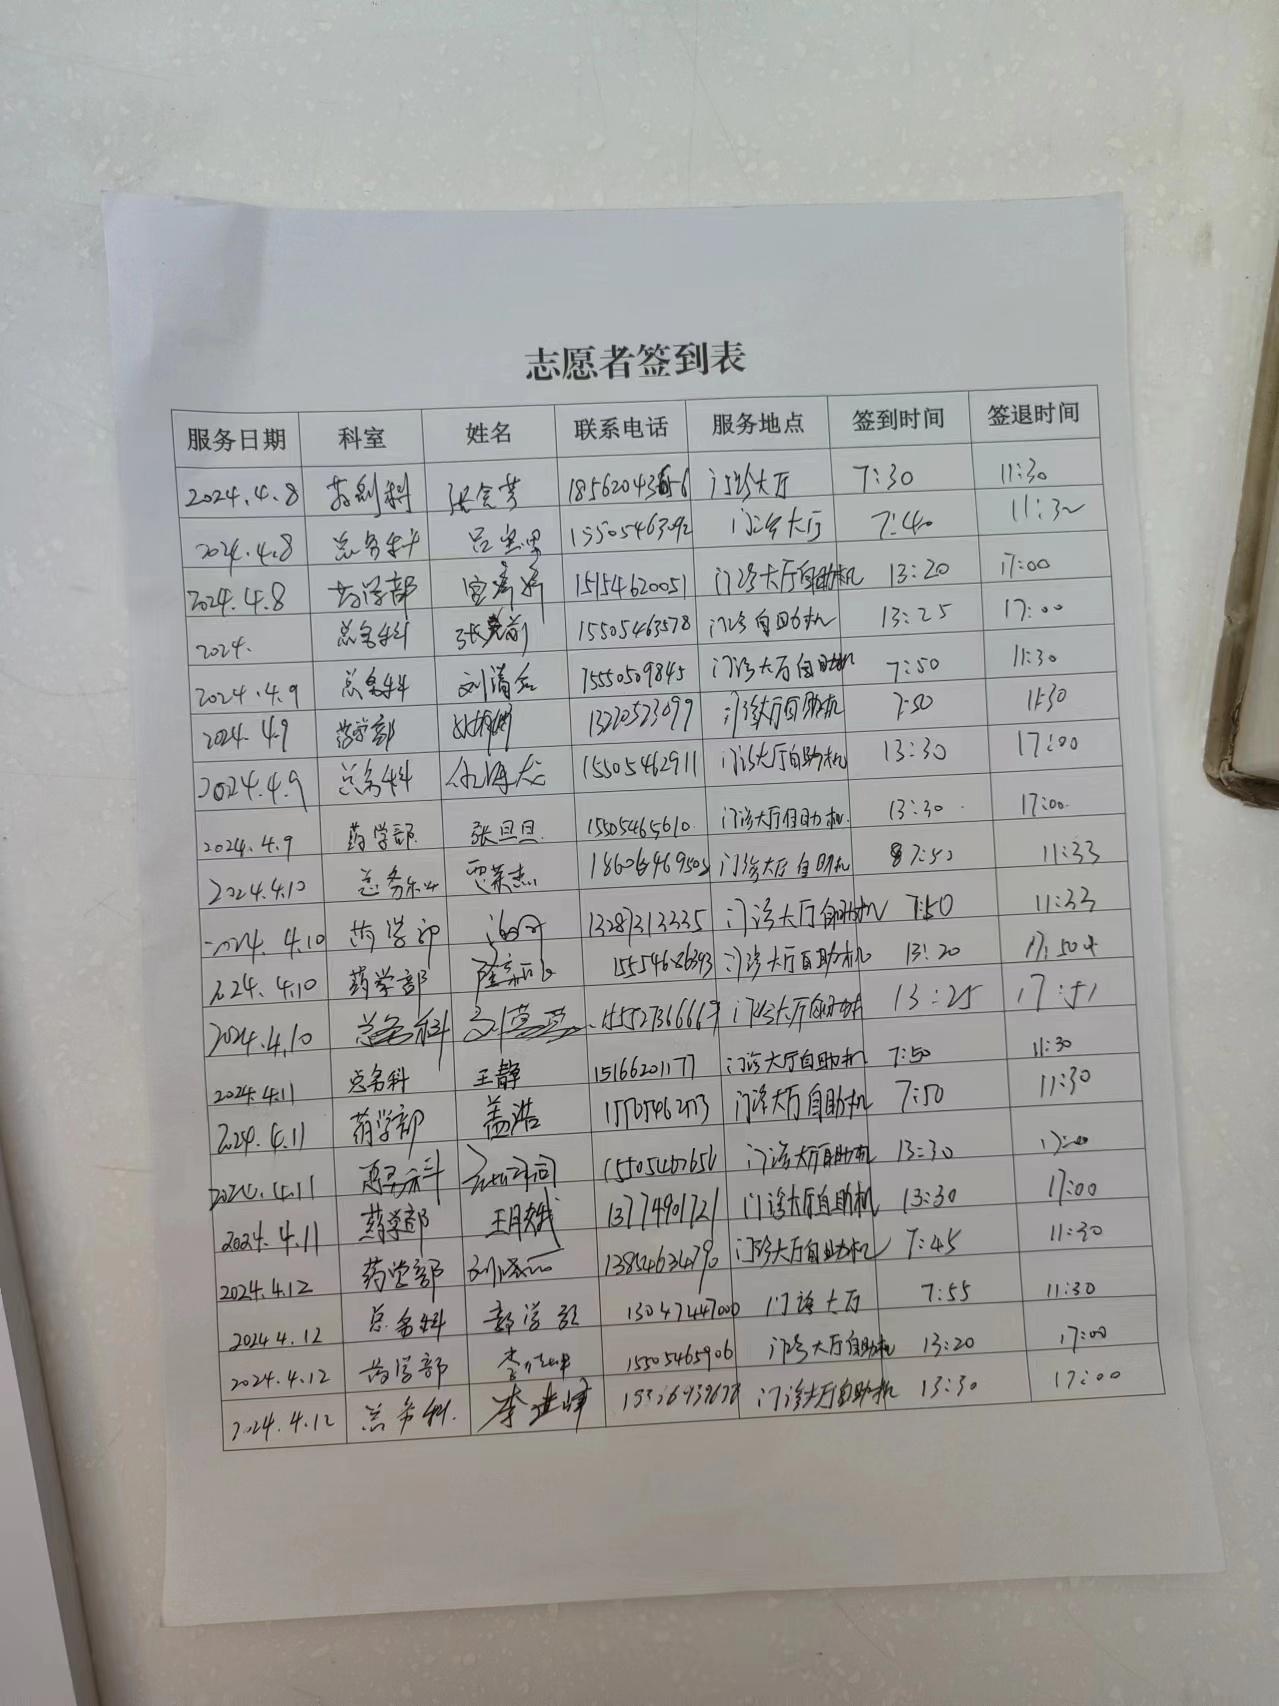 志愿者签到表
服务日期 科室 姓名 联系电话 服务地点 签到时间 签退时间
2024.4.8 药剂科 门诊大厅 7:30 11:30
2024.4.8 总务科 15505463092 门诊大厅 7:40 11:30
2024.4.8 药学部 15154620051 门诊大厅自助机 13:20 17:00
2024. 总务科 15505463578 门诊自助机 13:25 17:00
2024.4.9 总务科 15550509845 门诊大厅自助机 7:50 11:30
2024.4.9 药学部 13220573099 门诊大厅自助机 7:50 11:30
2024.4.9 总务科 15505462911 门诊大厅自助机 13:30 17:00
2024.4.9 药学部 张旦旦 15505465610 门诊大厅自助机 13:30 17:00
2024.4.10 总务科 贾荣杰 18606469505 门诊大厅自助机 7:50 11:33
2024.4.10 药学部 13287313335 门诊大厅自助机 7:50 11:33
2024.4.10 药学部 15554686393 门诊大厅自助机 13:20
2024.4.10 总务科 门诊大厅自助机 13:25 17:51
2024.4.11 总务科 王静 15166201177 门诊大厅自助机 7:50 11:30
2024.4.11 药学部 盖浩 门诊大厅自助机 7:50 11:30
2024.4.11 总务科 门诊大厅自助机 13:30 17:00
2024.4.11 药学部 王月娥 13774901721 门诊大厅自助机 13:30 17:00
2024.4.12 药学部 13854634790 门诊大厅自助机 7:45 11:30
2024.4.12 总务科 13047447000 门诊大厅 7:55 11:30
2024.4.12 药学部 15505465906 门诊大厅自助机 13:20 17:00
2024.4.12 总务科 李进峰 门诊大厅自助机 13:30 17:00